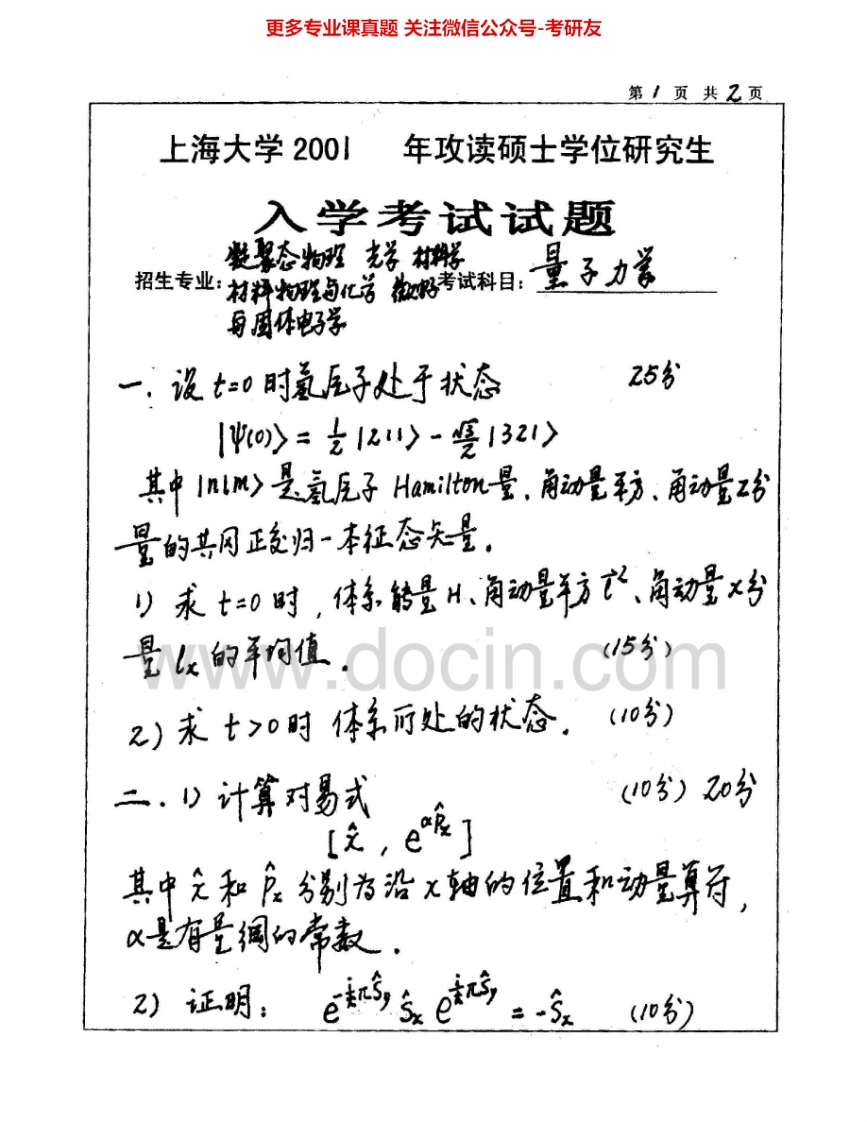 更多专业课真题 关注微信公众号-考研友
第 1 页 共 2 页
上海大学 2001 年攻读硕士学位研究生
入学考试试题
凝聚态物理 光学 材料学
招生专业: 材料物理与化学 微电子 考试科目: 量子力学
与固体电子学
一. 设 t=0 时氢原子处于状态 25分
|Ψ(0)〉= 1/2 |211〉- √3/2 |321〉
其中 |nlm〉是氢原子 Hamilton量、角动量平方、角动量Z分
量的共同正交归一本征态矢量.
1) 求 t=0 时, 体系能量 H、角动量平方 l̂², 角动量 x 分
量 lx 的平均值. (15分)
www.docin.com
2) 求 t>0 时 体系所处的状态. (10分)
二. 1) 计算对易式 (10分) 20分
[x̂, e^{αp̂x}]
其中 x̂ 和 p̂x 分别为沿 x 轴的位置和动量算符,
α是有量纲的常数.
2) 证明: e^{-i/ħ πŜy} Ŝx e^{i/ħ πŜy} = -Ŝx (10分)